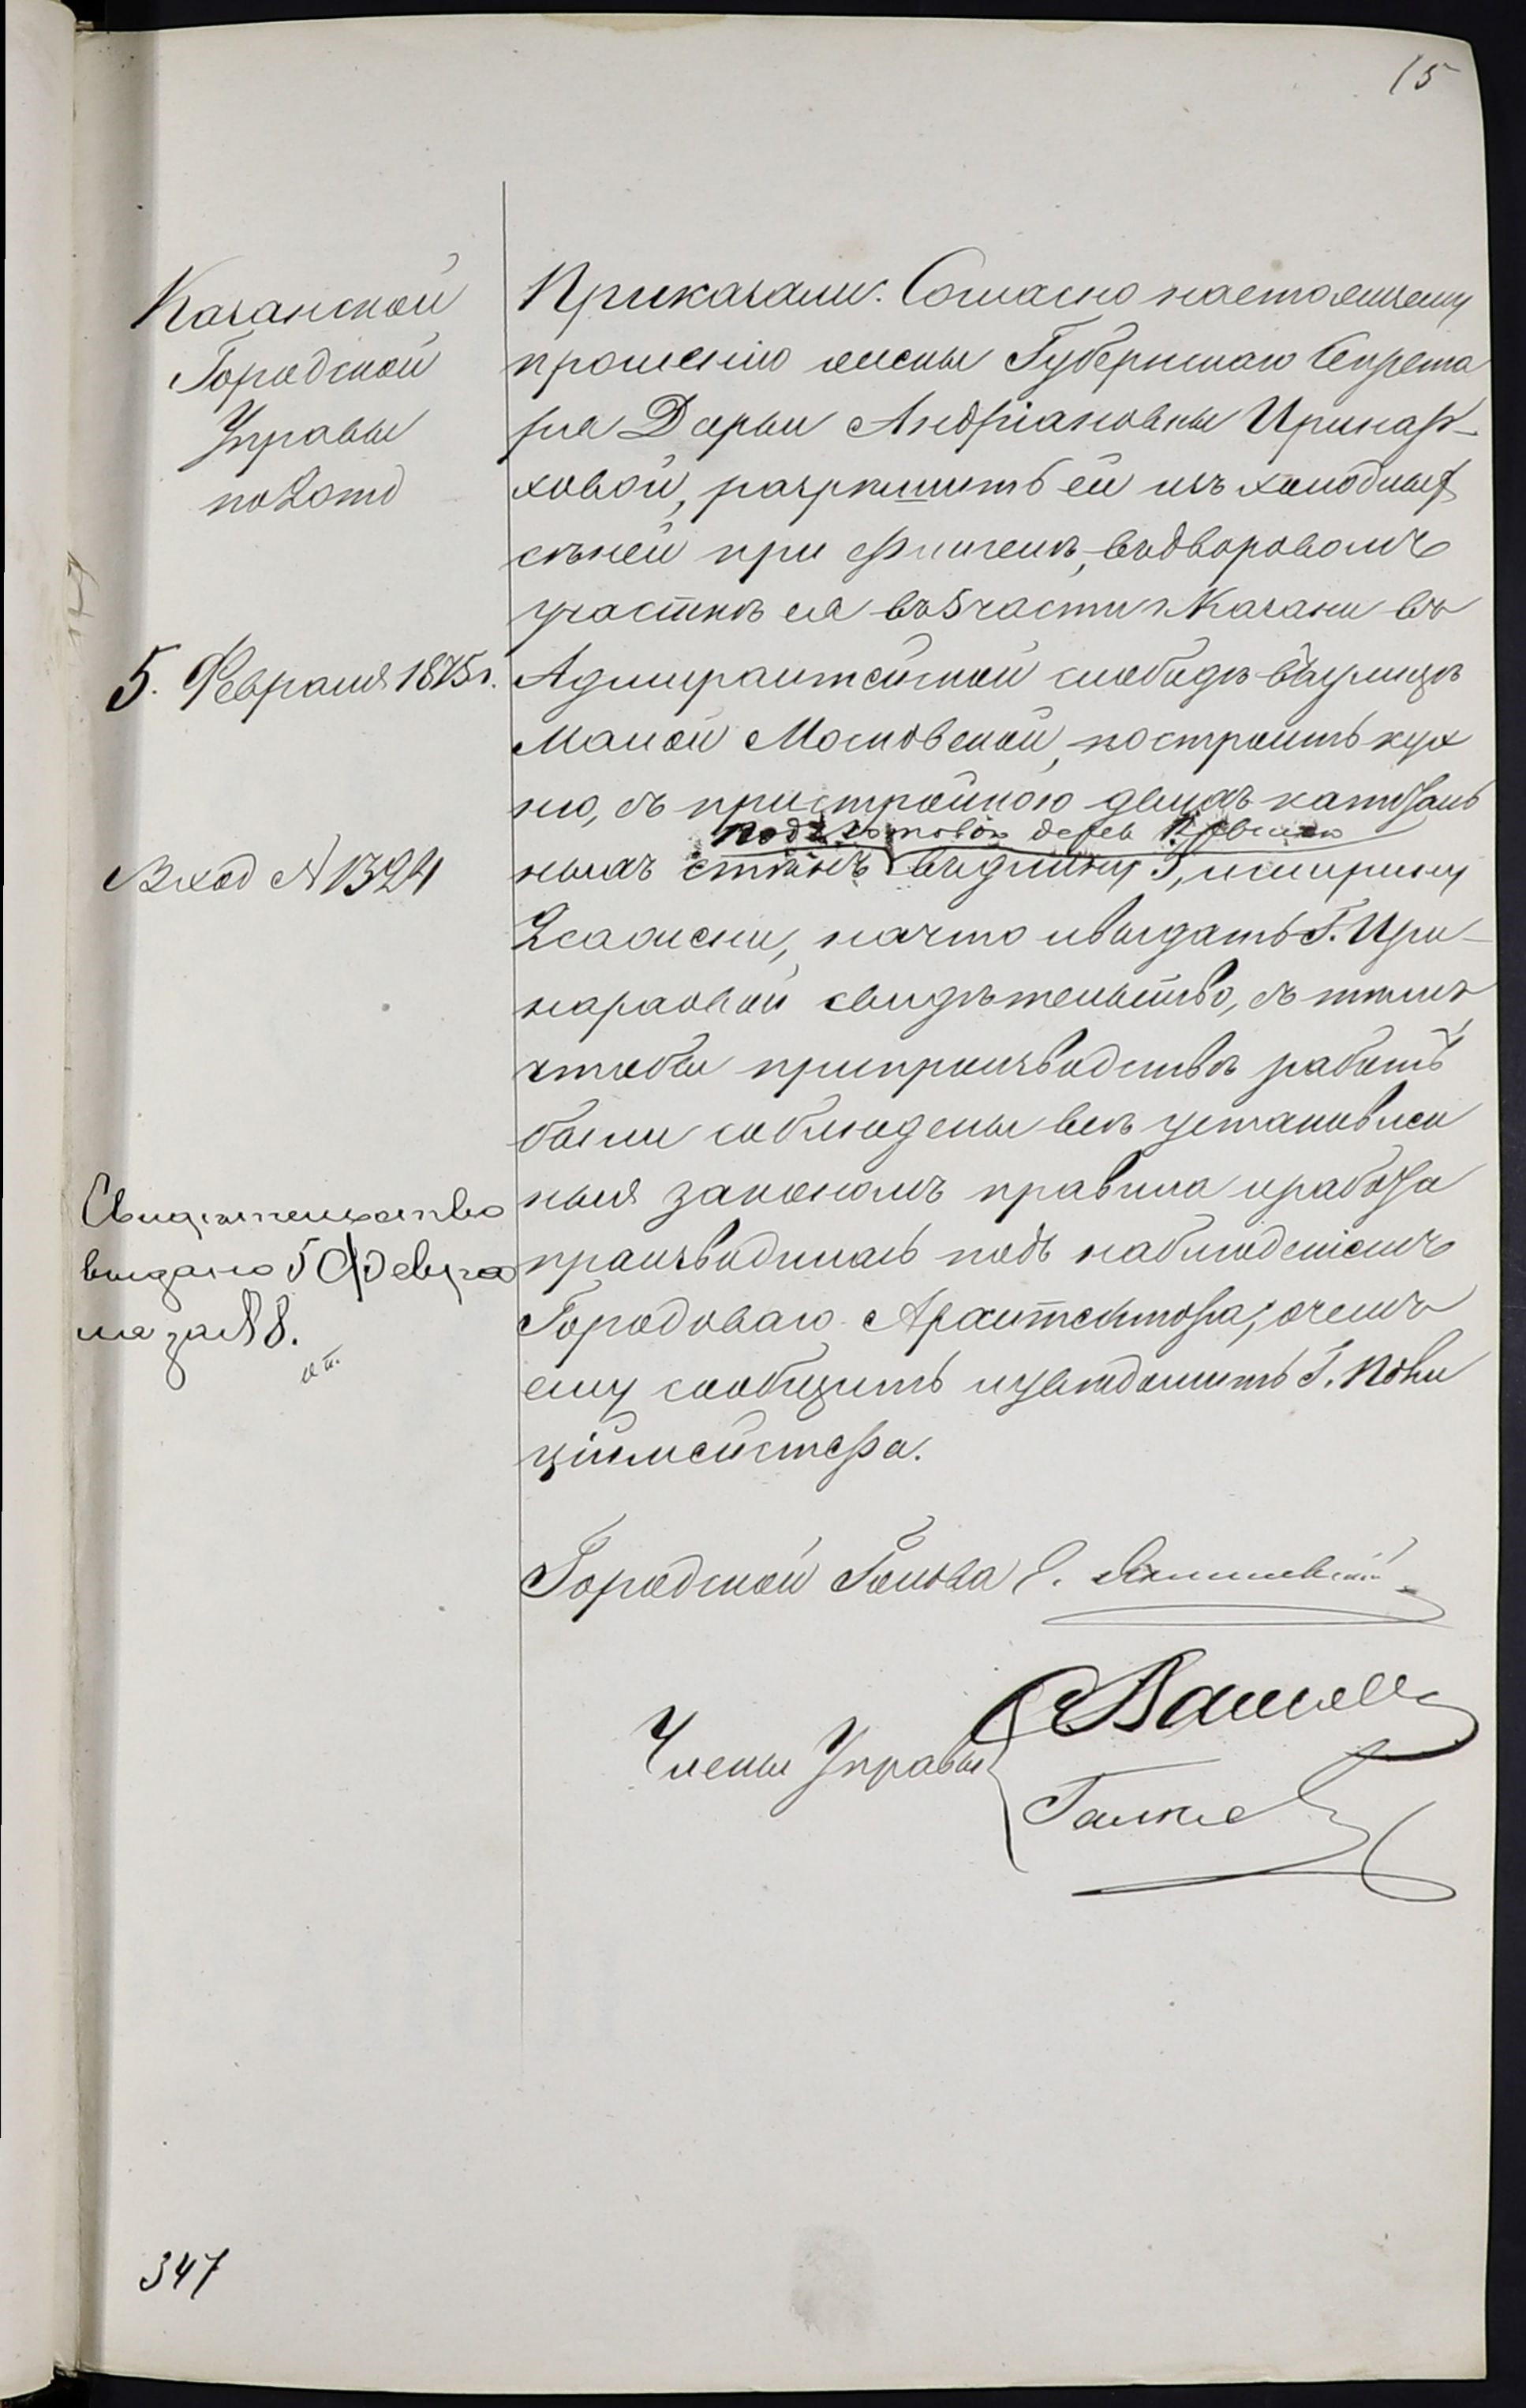 15
Казанской
Городской
Управы
по 2 отд
5. Февраля 1875 г.
Вход № 1324
Свидѣтельство
выдано 5 Февра
ля за № 8.
Приказали: Согласно настоящему
прошенію жены Губернскаго Секрета
ря Дарьи Андріановны Иринар-
ховой, разрѣшить ей изъ холодныхъ
сѣней при флигелѣ, въ дворовомъ
участкѣ ея въ 5 части г. Казани въ
Адмиралтейской слободѣ въ улицѣ
Малой Московской, построить кух
ню, съ пристройкою двухъ капиталь
под
ныхъ стѣнъ въ длину 3, и ширину
2 сажени, на что и выдать Г. Ири-
нарховой свидѣтельство, съ тѣмъ
чтобы при производствѣ работъ
были соблюдены всѣ установлен
ныя закономъ правила и работа
производилась подъ наблюденіемъ
Городоваго Архитектора, о чемъ
ему сообщить и увѣдомить Г. Поли
ціймейстера.
Городской Голова Э. Янишевскій
Члены Управы
Галкин
347